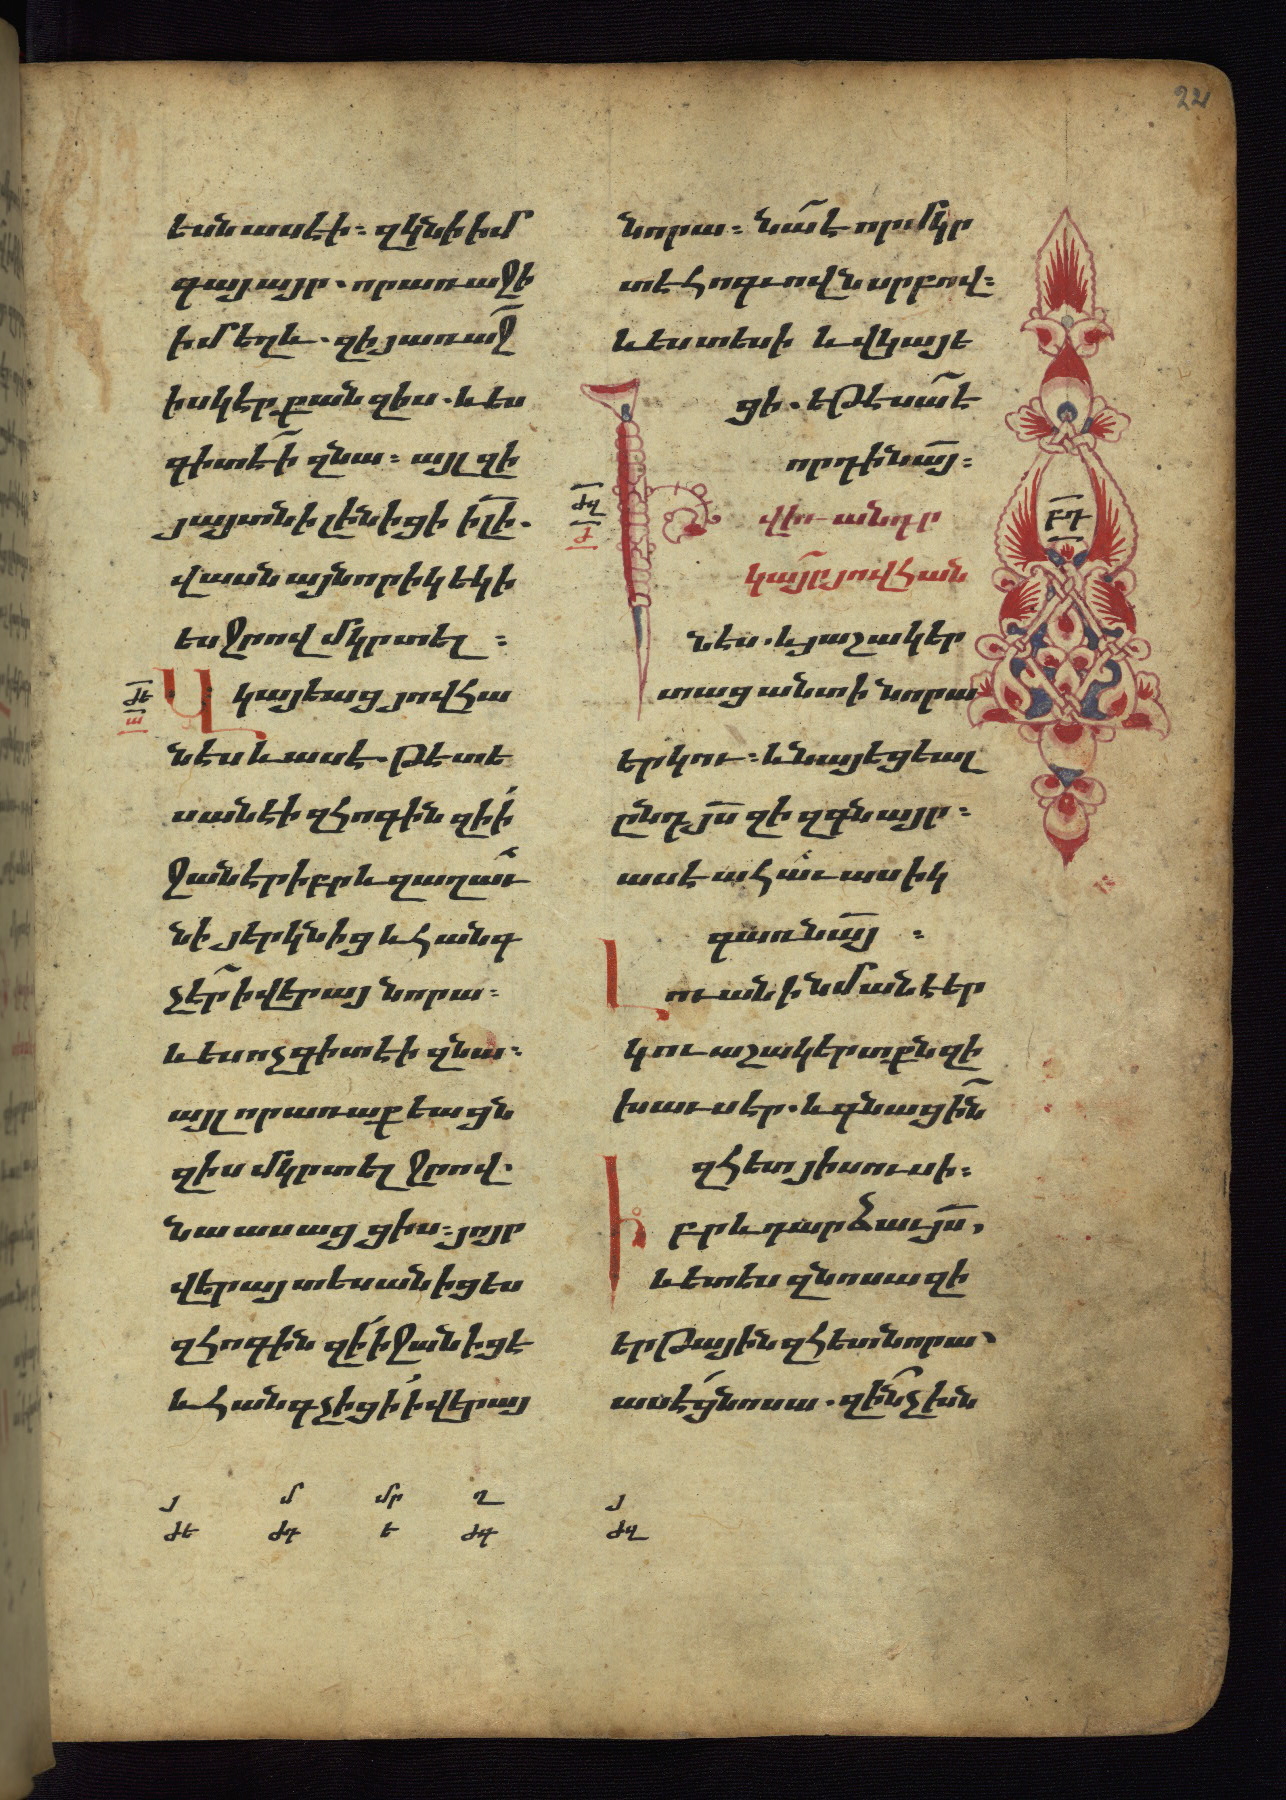 22
եսն ասէի։ զկնի իմ
գայ այր. որ առաջի
իմ եղև. զի յառաջ
իսկ էր քան զիս. և ես
գիտէի զնա։ այլ զի
յայտնի լինիցի իլի.
վասն այնորիկ եկի
ես ջրով մկրտել։
ժե
ը
Վկայեաց յովհա
նէս և ասէ. թէ տե
սանէի զհոգին զի ի
ջանէր իբրև զաղաւ
նի յերկնից և հանգ
չէր ի վերայ նորա։
և ես ոչ գիտէի զնա։
այլ որ առաքեացն
զիս մկրտել ջրով.
նա ասաց ցիս։ յոյր
վերայ տեսանիցես
զհոգին զի իջանիցէ
և հանգչիցի ի վերայ
նորա։ նա է որ մկր
տէ հոգւովն սրբով։
և ես տեսի և վկայե
ցի. եթէ սա է
որդին այ։
ժզ
ժ
Ի վիւս անդր
կայր յովհան
նէս. և յաշակեր
տաց անտի նորա
երկու։ և հայեցեալ
ընդ յս զի զգնայր։
ասէ ահաւասիկ
գառն այ։
Լուան ի նմանէ եր
կու աշակերտքն զի
խաւսէր. և գնացին
զհետ յիսուսի։
Իբրև դարձաւ յս,
և ետես զնոսա զի
երթային զհետ նորա՝
ասէ ցնոսա. զինչ էսն
բդ
յ մ մր ղ յ
ժե ժդ ե ժգ ժզ